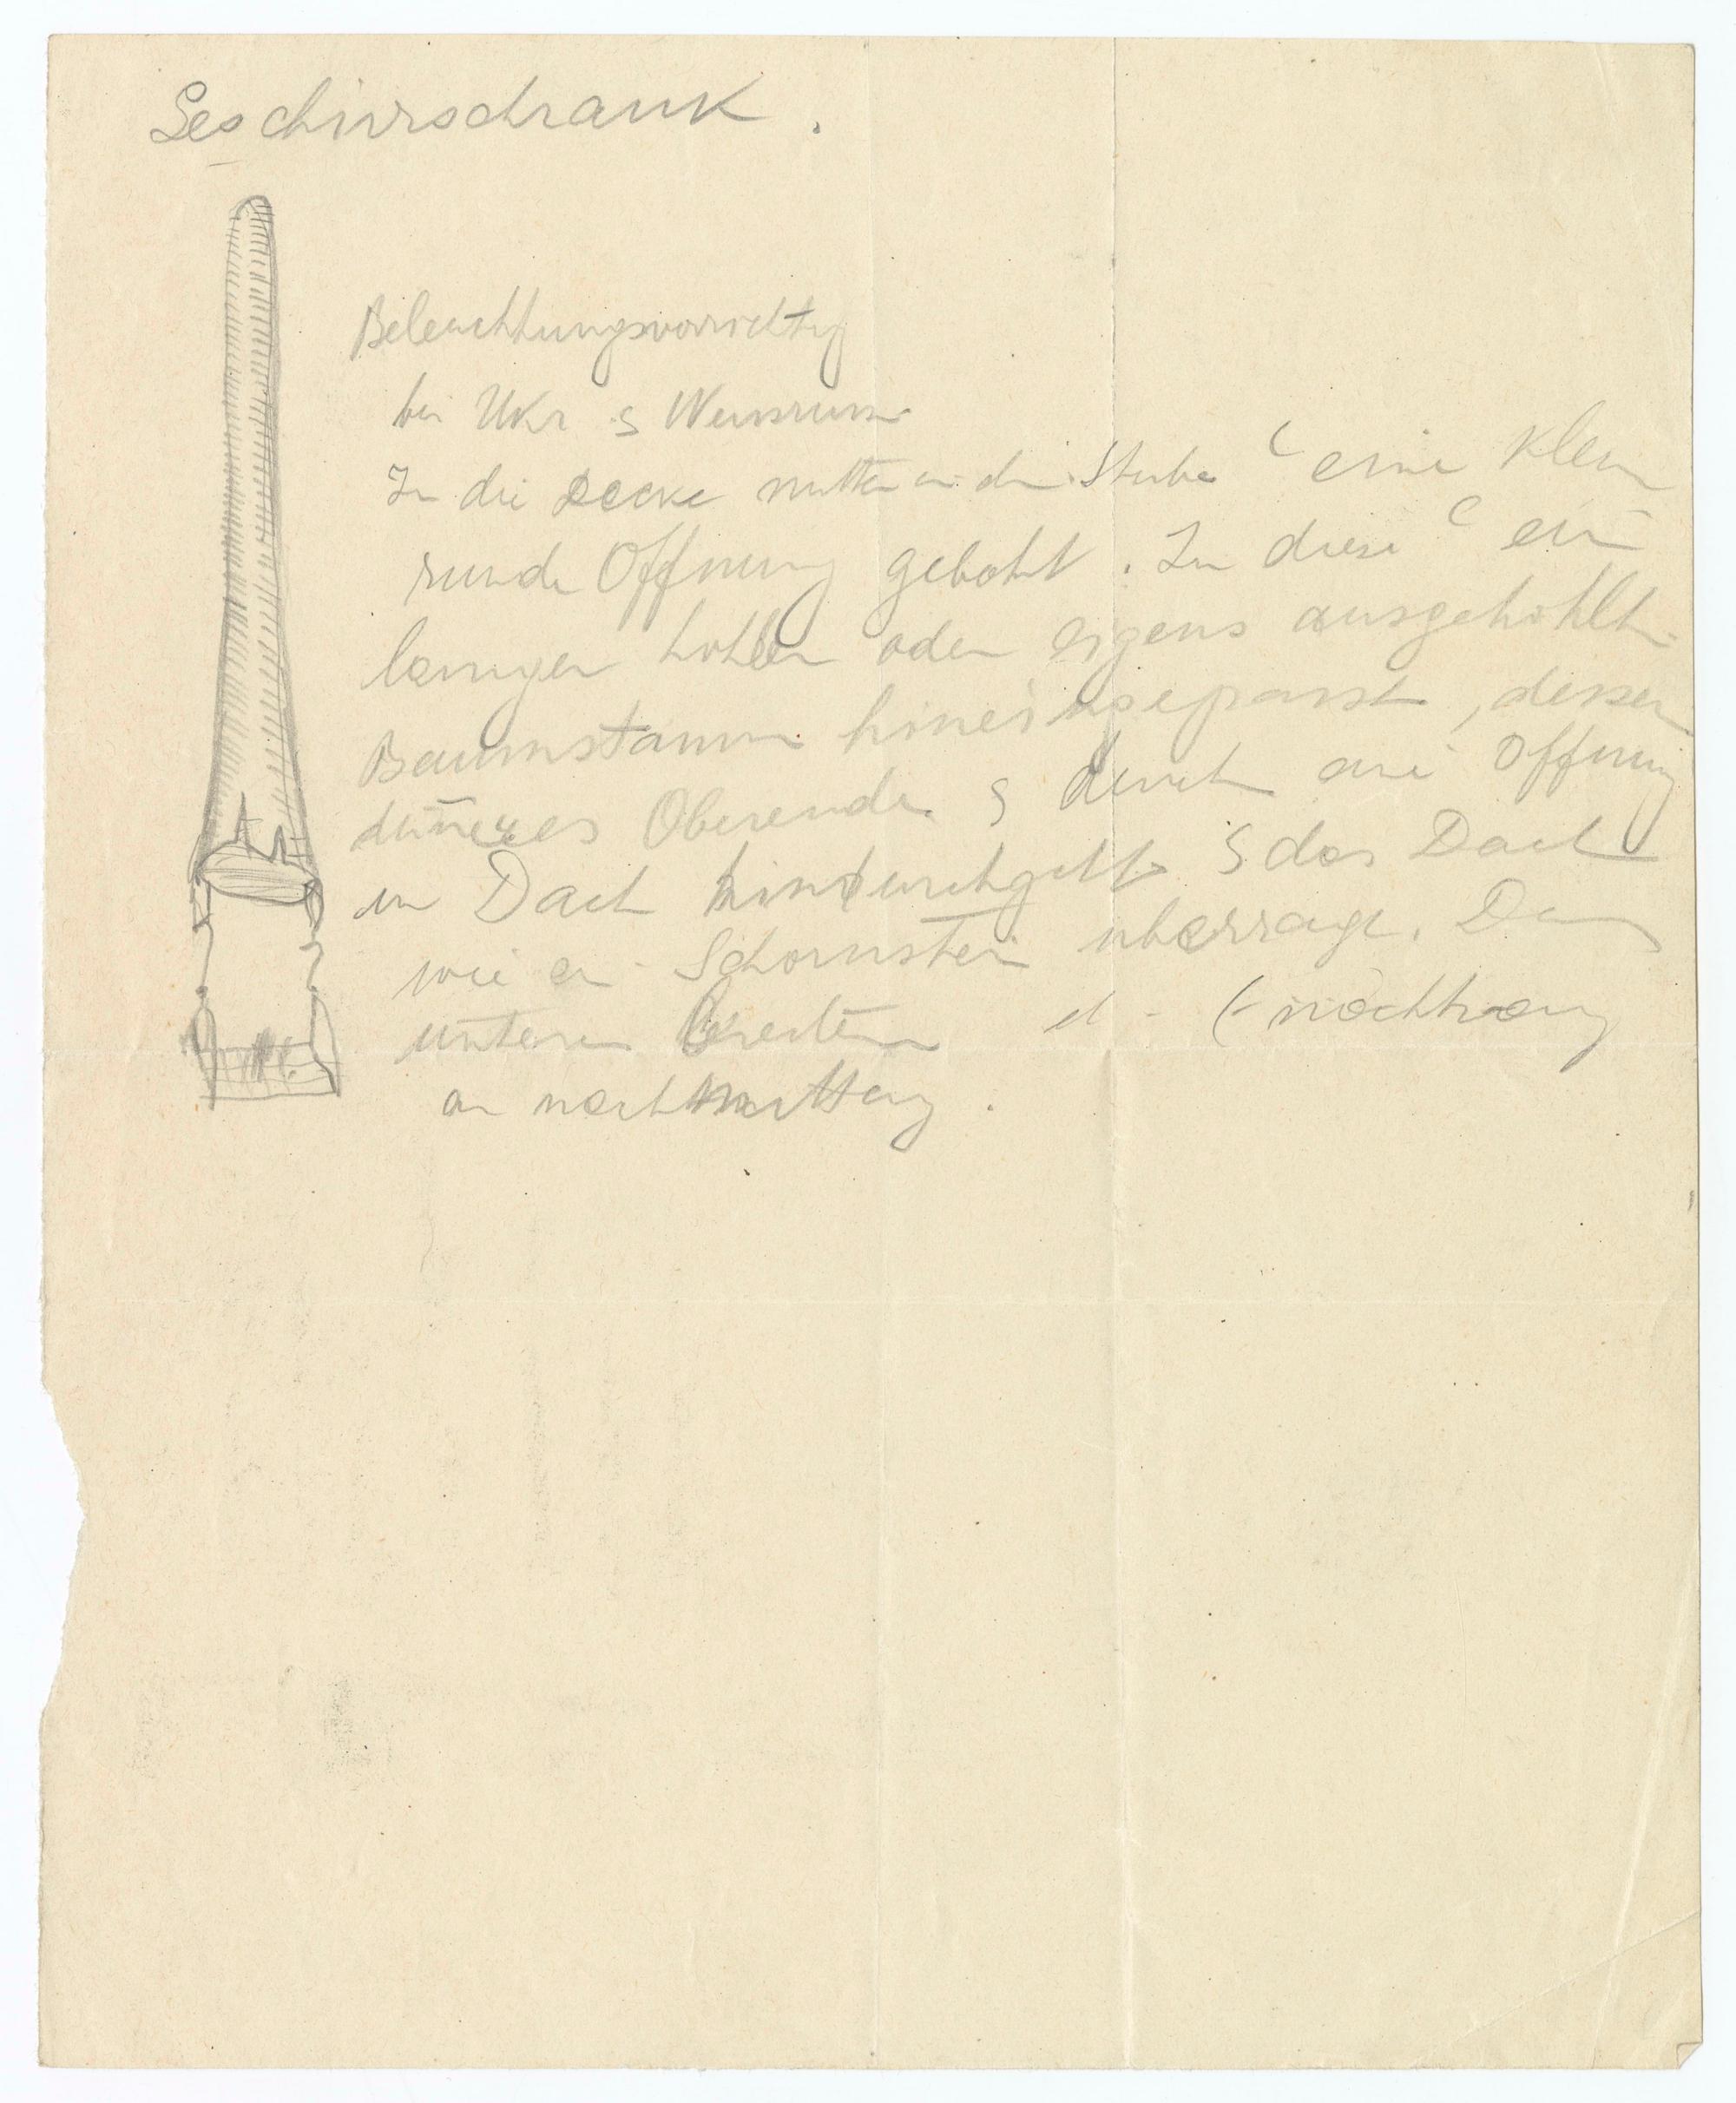 Geschirrschrank.
Beleuchtungsvorrichtg
bei Ukr s Weissrussen
In die Decke mitten in der Stube eine kleine
runde Öffnung gebohrt. In diese ein
langer hohler oder eigens ausgehöhlter
Baumstamm hineingepasst, dessen
dünneres Oberende s durch die Öffnung
im Dach hindurchgeht s das Dach
wie ein Schornstein überragt. Dem
unteren Breiten